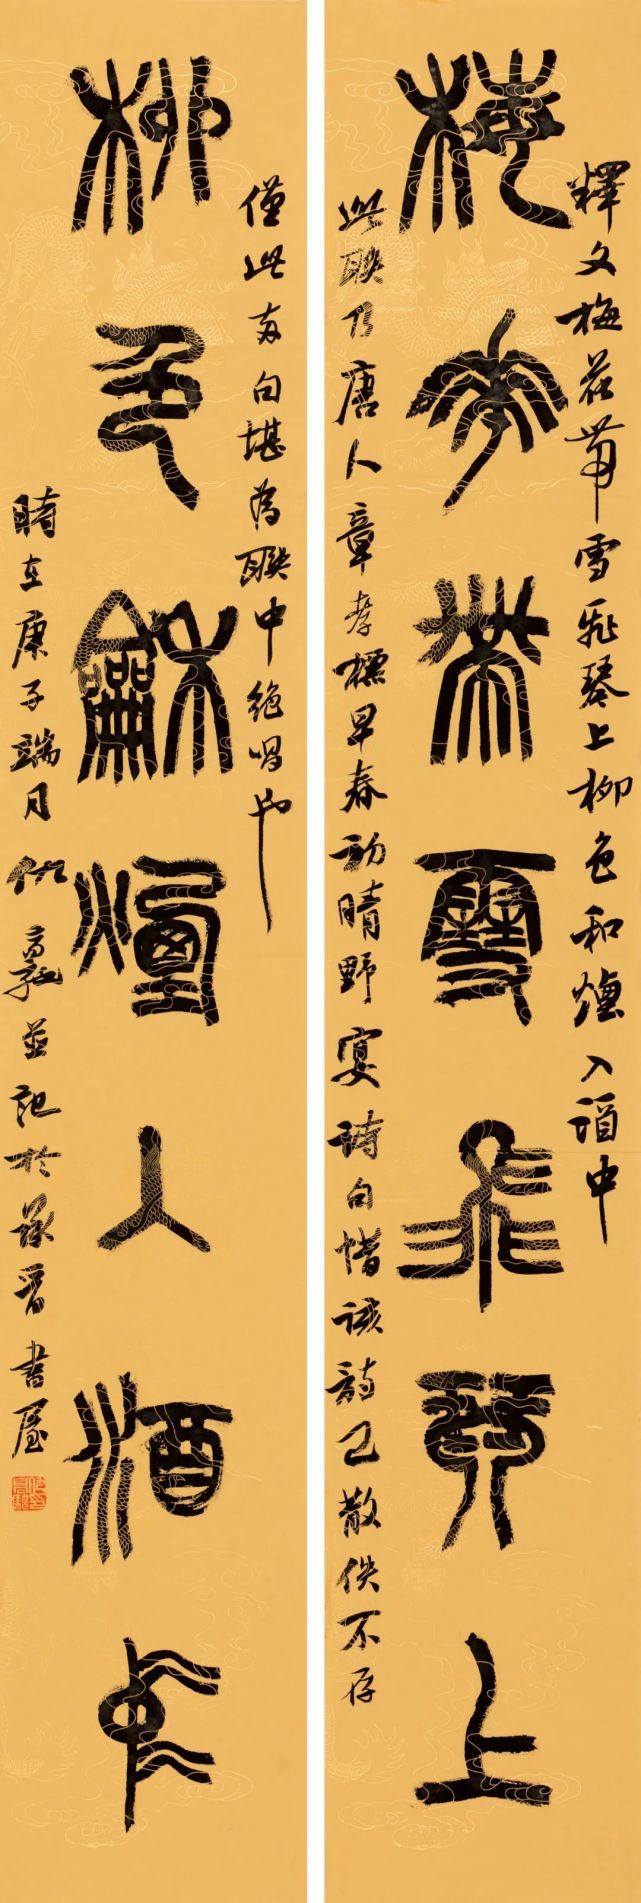 釋文梅花帶雪飛琴上柳色和煙入酒中
梅華帶雪飛琴上
此聫乃唐人章孝標早春初晴野宴詩句惜該詩已散佚不存
僅此兩句堪為聫中絕唱也
柳色龢煙入酒中
時在庚子端月仇高馳並記於承晉書屋